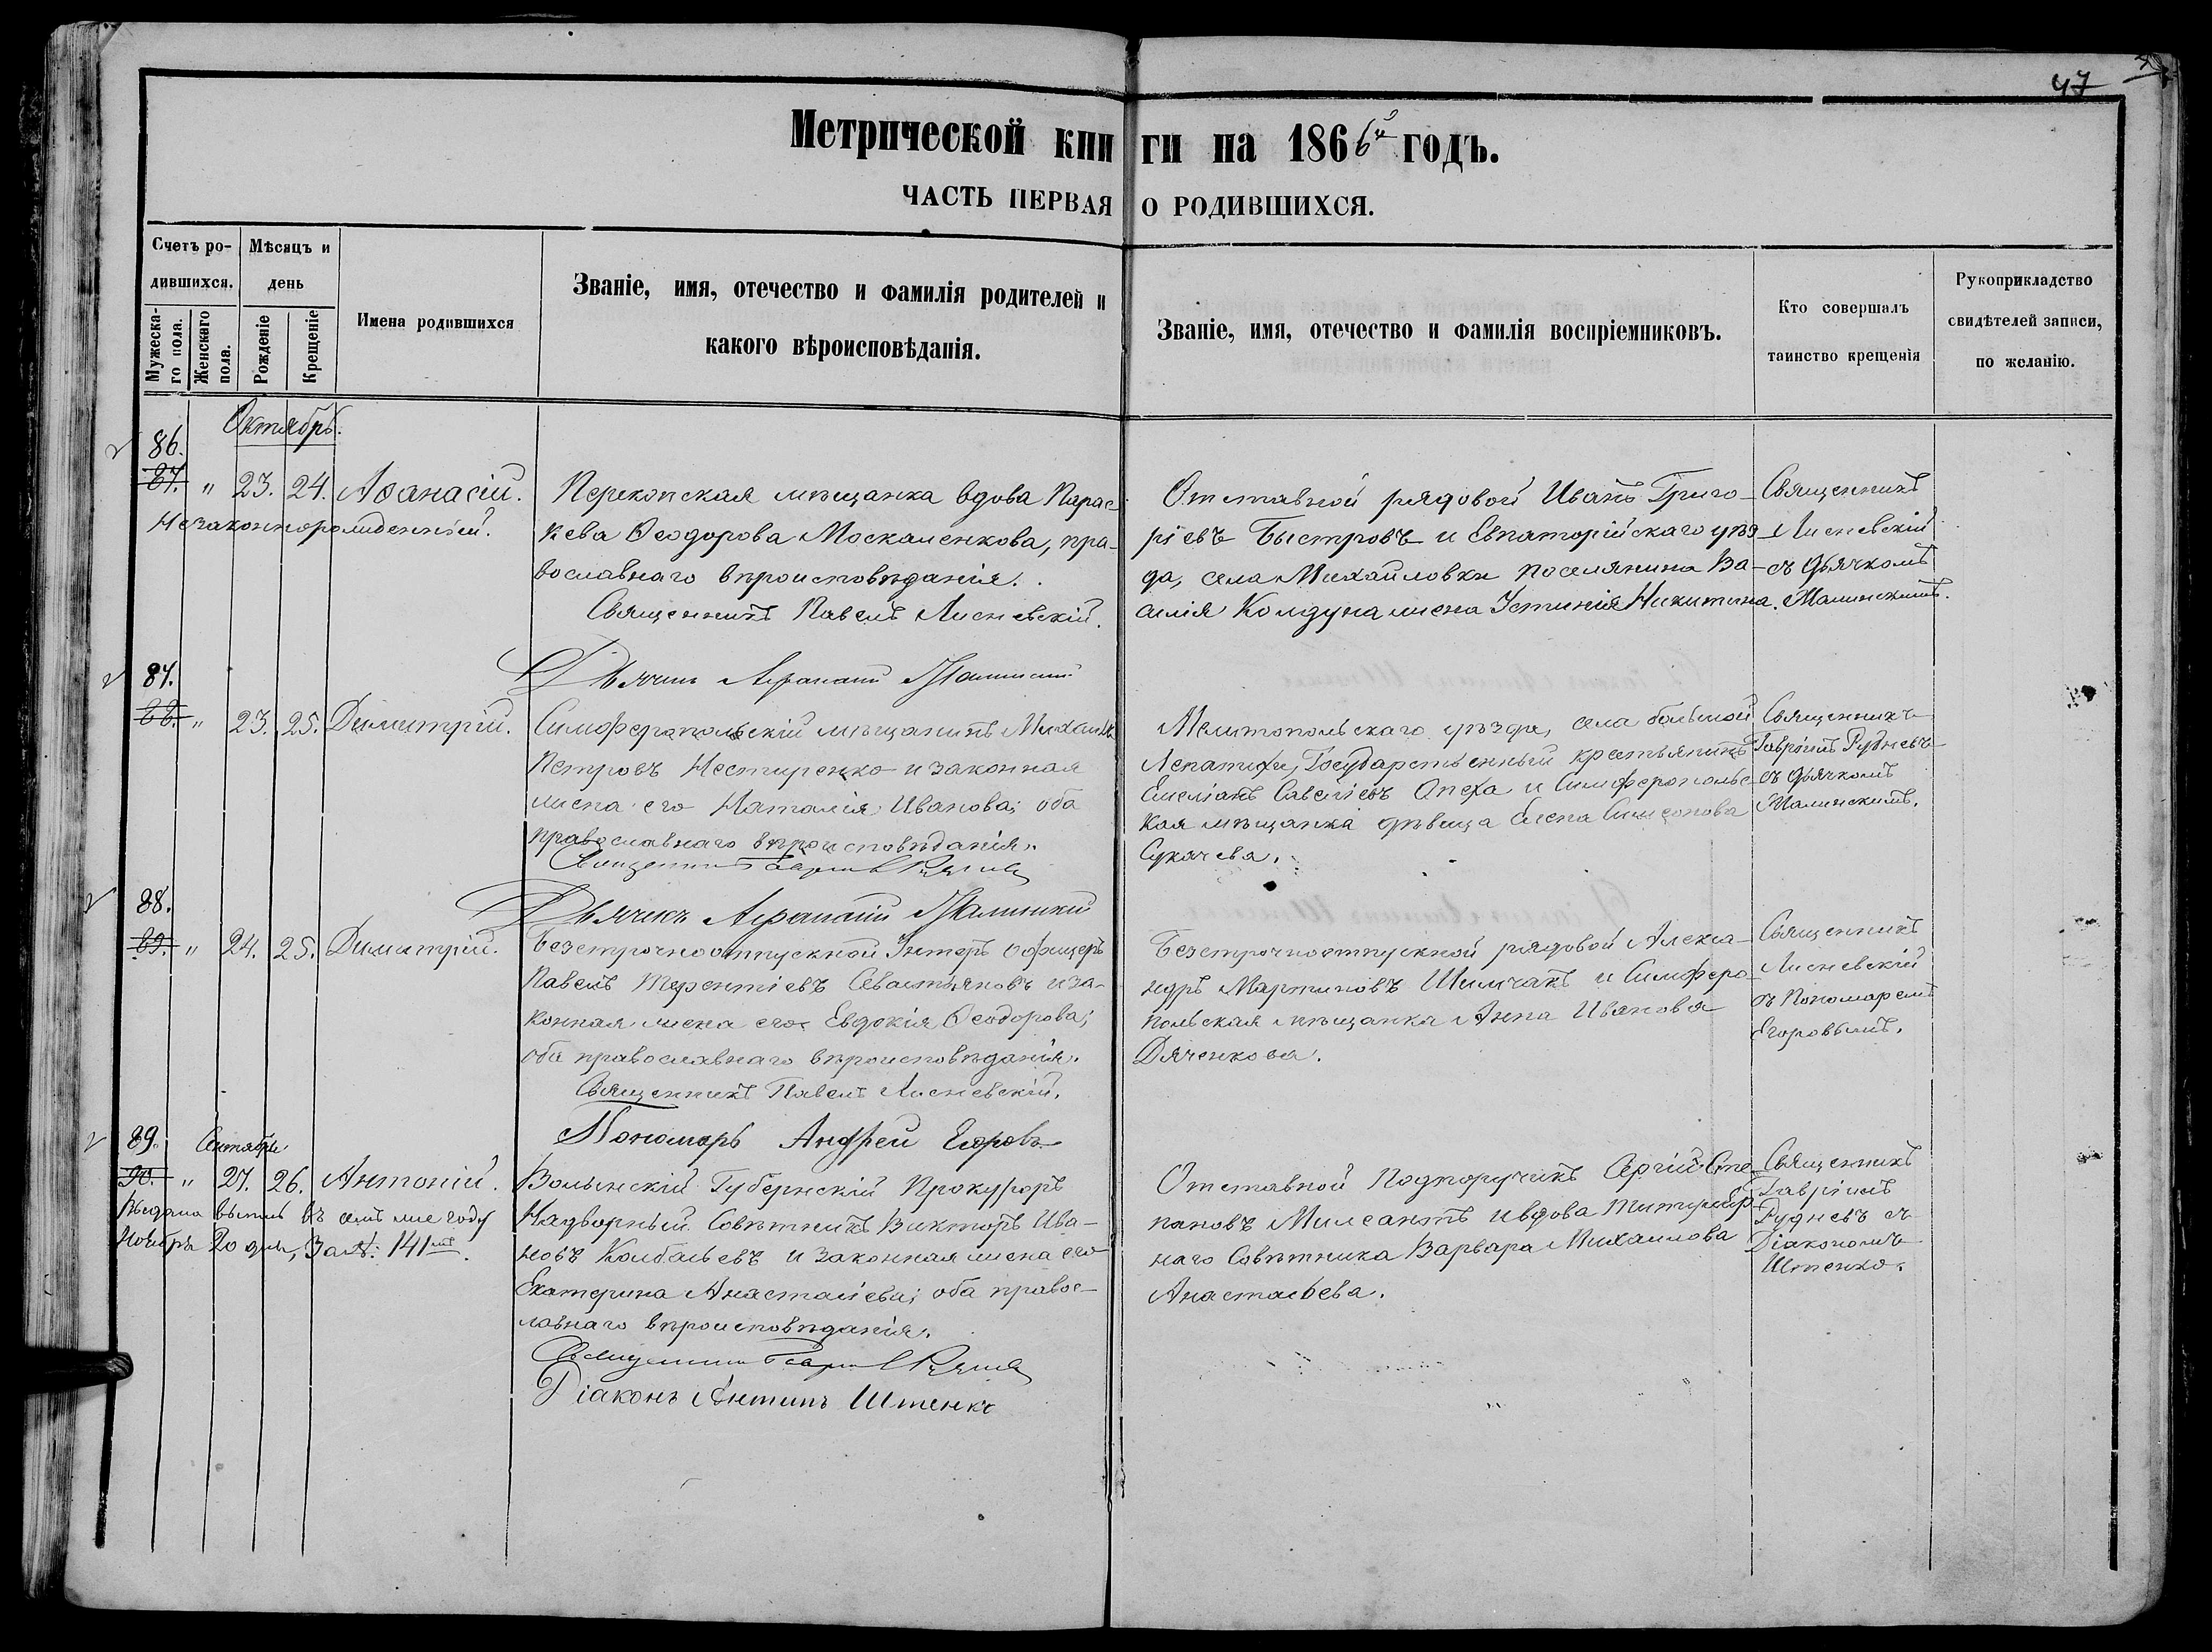 47
Метрической книги на 1866й годъ.
ЧАСТЬ ПЕРВАЯ О РОДИВШИХСЯ.
Счетъ родившихся.
Мужескаго пола.
Женскаго пола.
Мѣсяцъ и день
Рожденіе
Крещеніе
Имена родившихся
Званіе, имя, отечество и фамилія родителей и
какого вѣроисповѣданія.
Званіе, имя, отечество и фамилія воспріемниковъ.
Кто совершалъ
таинство крещенія
Рукоприкладство
свидѣтелей записи,
по желанію.
Октябрь.
86.
87. " 23. 24. Аѳанасій.
Незаконнорожденный.
Перекопская мѣщанка вдова Парас-
кева Ѳеодорова Москаленкова, пра-
вославнаго вѣроисповѣданія.
Священникъ Павелъ Лисневскій.
Дьячекъ Аѳанасій Малинскій
Отставной рядовой Иванъ Григо-
ріевъ Быстровъ и Евпаторійскаго уѣз-
да, села Михайловки поселянина Ва-
силія Колдуна жена Устинія Никитина.
Священникъ
Лисневскій
съ дьячкомъ
Малинскимъ.
87.
88. " 23. 25. Димитрій.
Симферопольскій мѣщанинъ Михаилъ
Петровъ Нестиренко и законная
жена его Наталія Иванова; оба
православнаго вѣроисповѣданія.
Священникъ Гавріилъ Рудневъ
Дьячекъ Аѳанасій Малинскій
Мелитопольскаго уѣзда, села большой
Лепатихи, Государственный крестьянинъ
Емеліанъ Савеліевъ Опеха и Симферопольс-
кая мѣщанка дѣвица Елена Симеонова
Сукачева.
Священникъ
Гавріилъ Рудневъ
съ дьячкомъ
Малинскимъ.
88.
89. " 24. 25. Димитрій.
Безсрочноотпускной Унтеръ офицеръ
Павелъ Терентіевъ Севастьяновъ и за-
конная жена его Евдокія Ѳеодорова;
оба православнаго вѣроисповѣданія.
Священникъ Павелъ Лисневскій.
Пономарь Андрей Егоровъ
Безсрочноотпускной рядовой Алекса-
ндръ Мартиновъ Шимчакъ и Симферо-
польская мѣщанка Анна Иванова
Дяченкова.
Священникъ
Лисневскій
съ Пономаремъ
Егоровымъ.
89. Сентябрь
90. " 27. 26. Антоній.
Выдана выпись въ семъ же году
Ноября 20 дня, за № 141мъ.
Волынскій Губернскій Прокуроръ
Надворный Совѣтникъ Викторъ Ива-
новъ Колбасьевъ и законная жена его
Екатерина Анастасіева; оба правос-
лавнаго вѣроисповѣданія.
Священникъ Гавріилъ Рудневъ
Діаконъ Антипъ Штенко
Отставной Подпоручикъ Сергій Сте-
пановъ Милеантъ и вдова Титуляр-
наго Совѣтника Варвара Михаилова
Анастасьева.
Священникъ
Гавріилъ
Рудневъ съ
Діакономъ
Штенко.